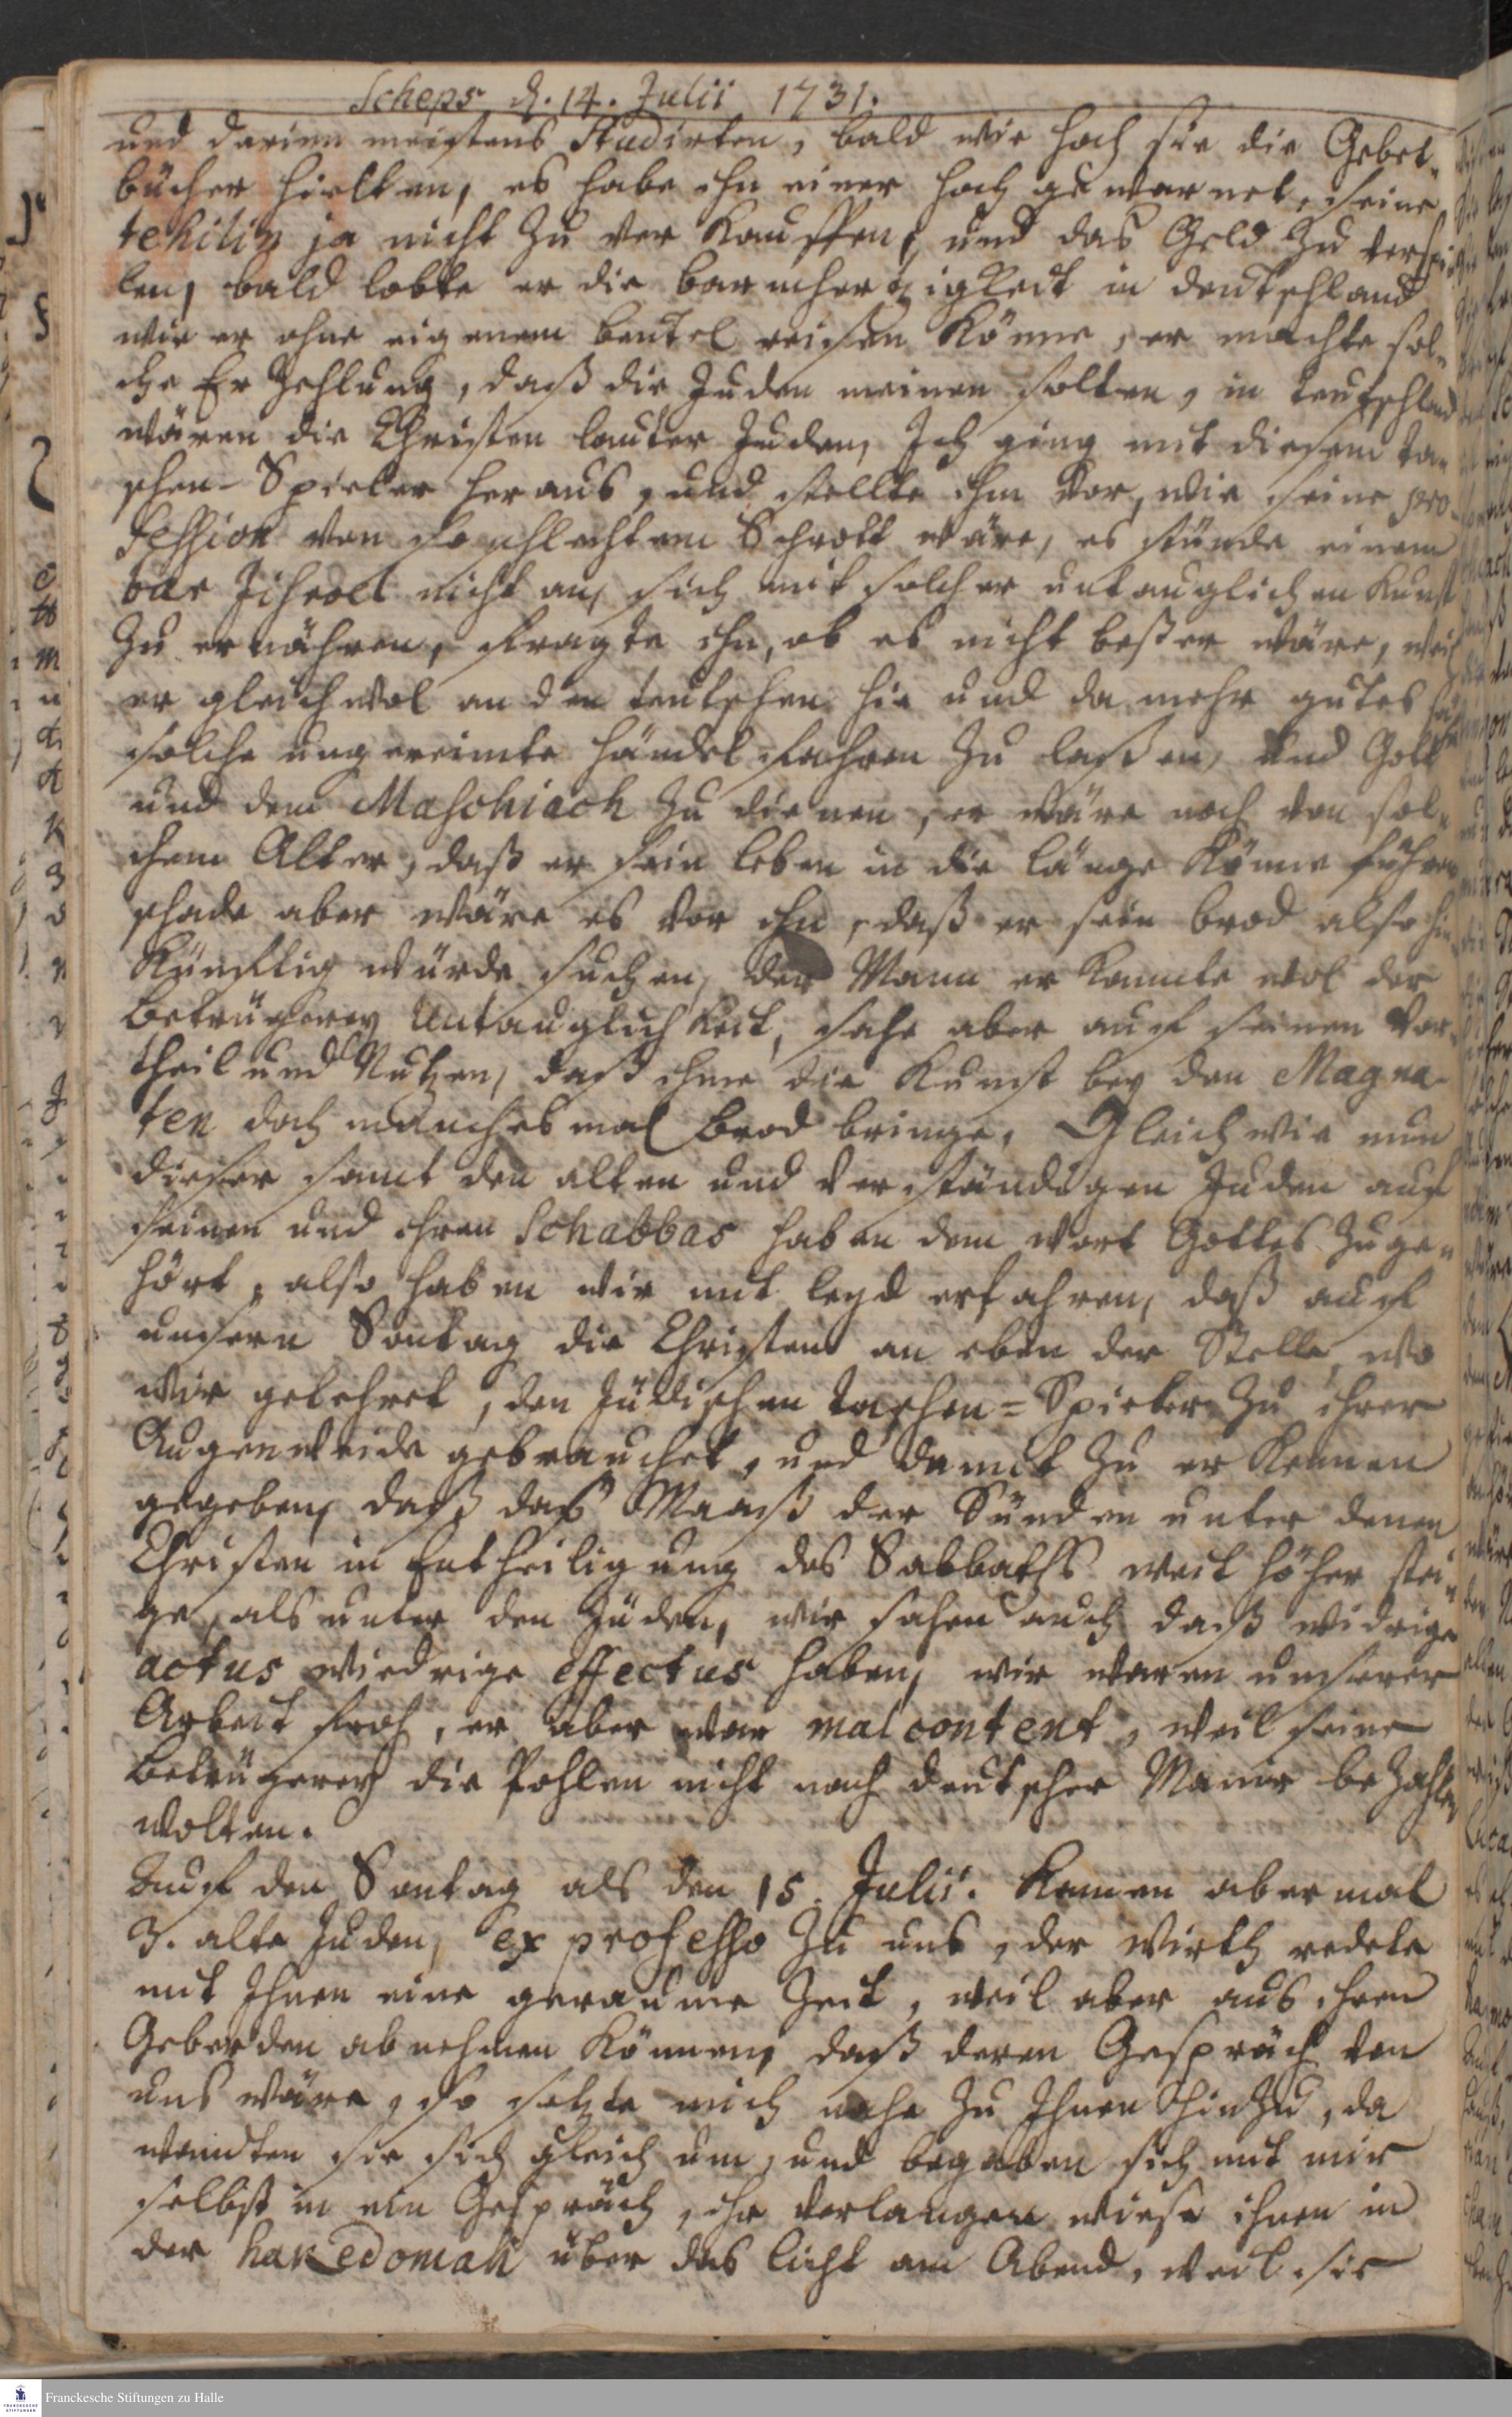 Scheps d. 14. Julii 1731.
und darinn meistens Studirten, bald wie hoch sie die Gebet-
bücher hielten, es habe ihn einer hoch gewarnet, seine
tehilim ja nicht zu verkauffen, und das Geld zu verspie-
len, bald lobte er die barmhertzigkeit in deutschland
wie er ohne eigenem beutel reisen könne, er machte sol-
che Erzehlung, daß die Juden meinen solten, in teutschland
wären die Christen lauter Juden, Ich ging mit diesem ta-
schen-Spieler heraus, und stellte ihm vor, wie seine pro-
fession von so schlechtem Schrott wäre, es stünde einem
bar Jisroel nicht an, sich mit solcher untauglichen Kunst
zu ernähren, fragte ihn, ob es nicht beßer wäre, weil
er gleichwol an den teutschen hie und da mehr gutes
solche ungereimte händel fahren zu laßen, und Gott
und dem Maschiach zu dienen, er wäre noch von sol-
chem Alter, daß er sein leben in die länge könne führen
schade aber wäre es vor ihn, daß er sein brod also hin-
künfftig würde suchen, der Mann erkannte wol der
betrügerey Untauglichkeit, sahe aber auf seinen Vor-
theil und Nutzen, daß ihme die Kunst bey den Magna-
ten doch manches mal brod bringe, Gleichwie nun
dieser samt den alten und verständigen Juden auf
seinen und ihren Schabbas haben dem wort Gottes zuge-
hört, also haben wir mit leyd erfahren, daß auf
unsern Sontag die Christen an eben der Stelle, wo
wir gelehret, den Jüdischen taschen=Spieler zu ihrer
Augenweide gebrauchet, und damit zu erkennen
gegeben, daß das Maaß der Sünden unter denen
Christen in Entheiligung des Sabbaths weit höher stei-
ge, als unter den Juden, wir sahen auch daß widrige
actus wiedrige effectus haben, wir waren unserer
Arbeit froh, er aber war malcontent, weil seine
betrügerey die Pohlen nicht nach deutscher Manir bezahlen
wolten.
Auf den Sontag als den 15. Julii. kamen abermal
3. alte Juden, ex professo zu uns, der Wirth redete
mit Ihnen eine geraume Zeit, weil aber aus ihren
Geberden abnehmen können, daß deren Gespräch von
uns wäre, so setzte mich nahe zu Ihnen hinzu, da
wandten sie sich gleich um, und begaben sich mit mir
selbst in ein Gespräch, ihr verlangen wiese ihnen in
der über das licht am Abend, weil sie
Franckesche Stiftungen zu Halle